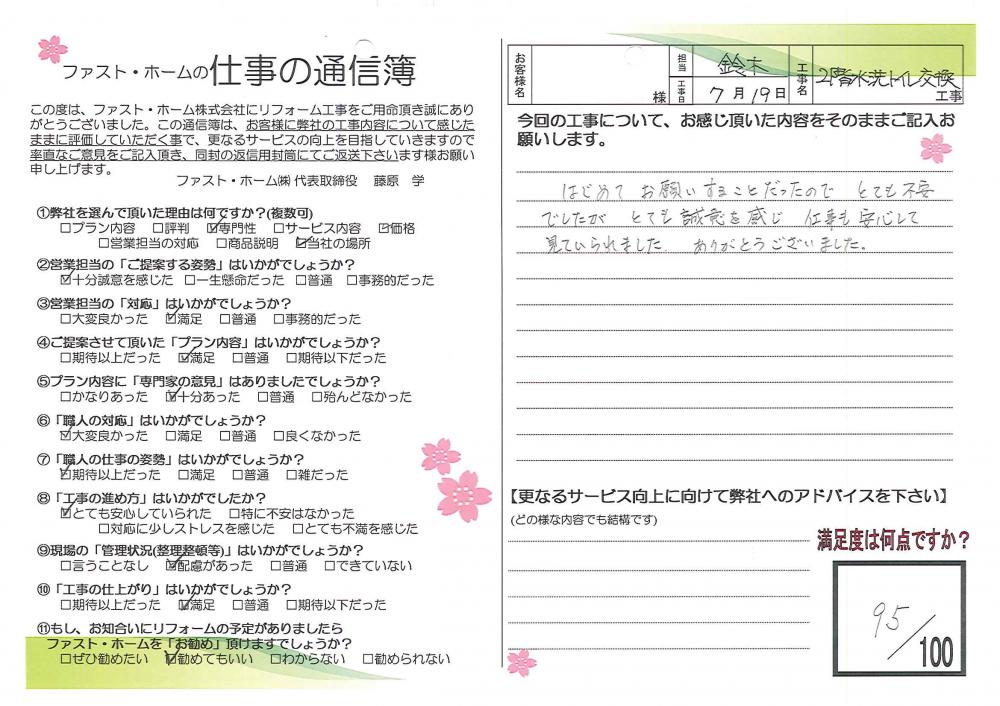 ファスト・ホームの仕事の通信簿
この度は、ファスト・ホーム株式会社にリフォーム工事をご用命頂き誠にあり
がとうございました。この通信簿は、お客様に弊社の工事内容について感じた
ままに評価していただく事で、更なるサービスの向上を目指していきますので
率直なご意見をご記入頂き、同封の返信用封筒にてご返送下さいます様お願い
申し上げます。
ファスト・ホーム㈱ 代表取締役 藤原 学
①弊社を選んで頂いた理由は何ですか？(複数可)
□プラン内容 □評判 ☑専門性 □サービス内容 ☑価格
□営業担当の対応 □商品説明 ☑当社の場所
②営業担当の「ご提案する姿勢」はいかがでしょうか？
☑十分誠意を感じた □一生懸命だった □普通 □事務的だった
③営業担当の「対応」はいかがでしょうか？
□大変良かった ☑満足 □普通 □事務的だった
④ご提案させて頂いた「プラン内容」はいかがでしょうか？
□期待以上だった ☑満足 □普通 □期待以下だった
⑤プラン内容に「専門家の意見」はありましたでしょうか？
□かなりあった ☑十分あった □普通 □殆んどなかった
⑥「職人の対応」はいかがでしょうか？
☑大変良かった □満足 □普通 □良くなかった
⑦「職人の仕事の姿勢」はいかがでしょうか？
☑期待以上だった □満足 □普通 □雑だった
⑧「工事の進め方」はいかがでしたか？
☑とても安心していられた □特に不安はなかった
□対応に少しストレスを感じた □とても不満を感じた
⑨現場の「管理状況(整理整頓等)」はいかがでしょうか？
□言うことなし ☑配慮があった □普通 □できていない
⑩「工事の仕上がり」はいかがでしょうか？
□期待以上だった ☑満足 □普通 □期待以下だった
⑪もし、お知合いにリフォームの予定がありましたら
ファスト・ホームを「お勧め」頂けますでしょうか？
□ぜひ勧めたい ☑勧めてもいい □わからない □勧められない
お客様名 様 担当 鈴木 工事日 7月19日 工事名 2階水洗トイレ交換工事
今回の工事について、お感じ頂いた内容をそのままご記入お
願いします。
はじめて お願いすることだったので とても不安
でしたが とても誠意を感じ 仕事も安心して
見ていられました ありがとうございました。
【更なるサービス向上に向けて弊社へのアドバイスを下さい】
(どの様な内容でも結構です)
満足度は何点ですか？
95/100